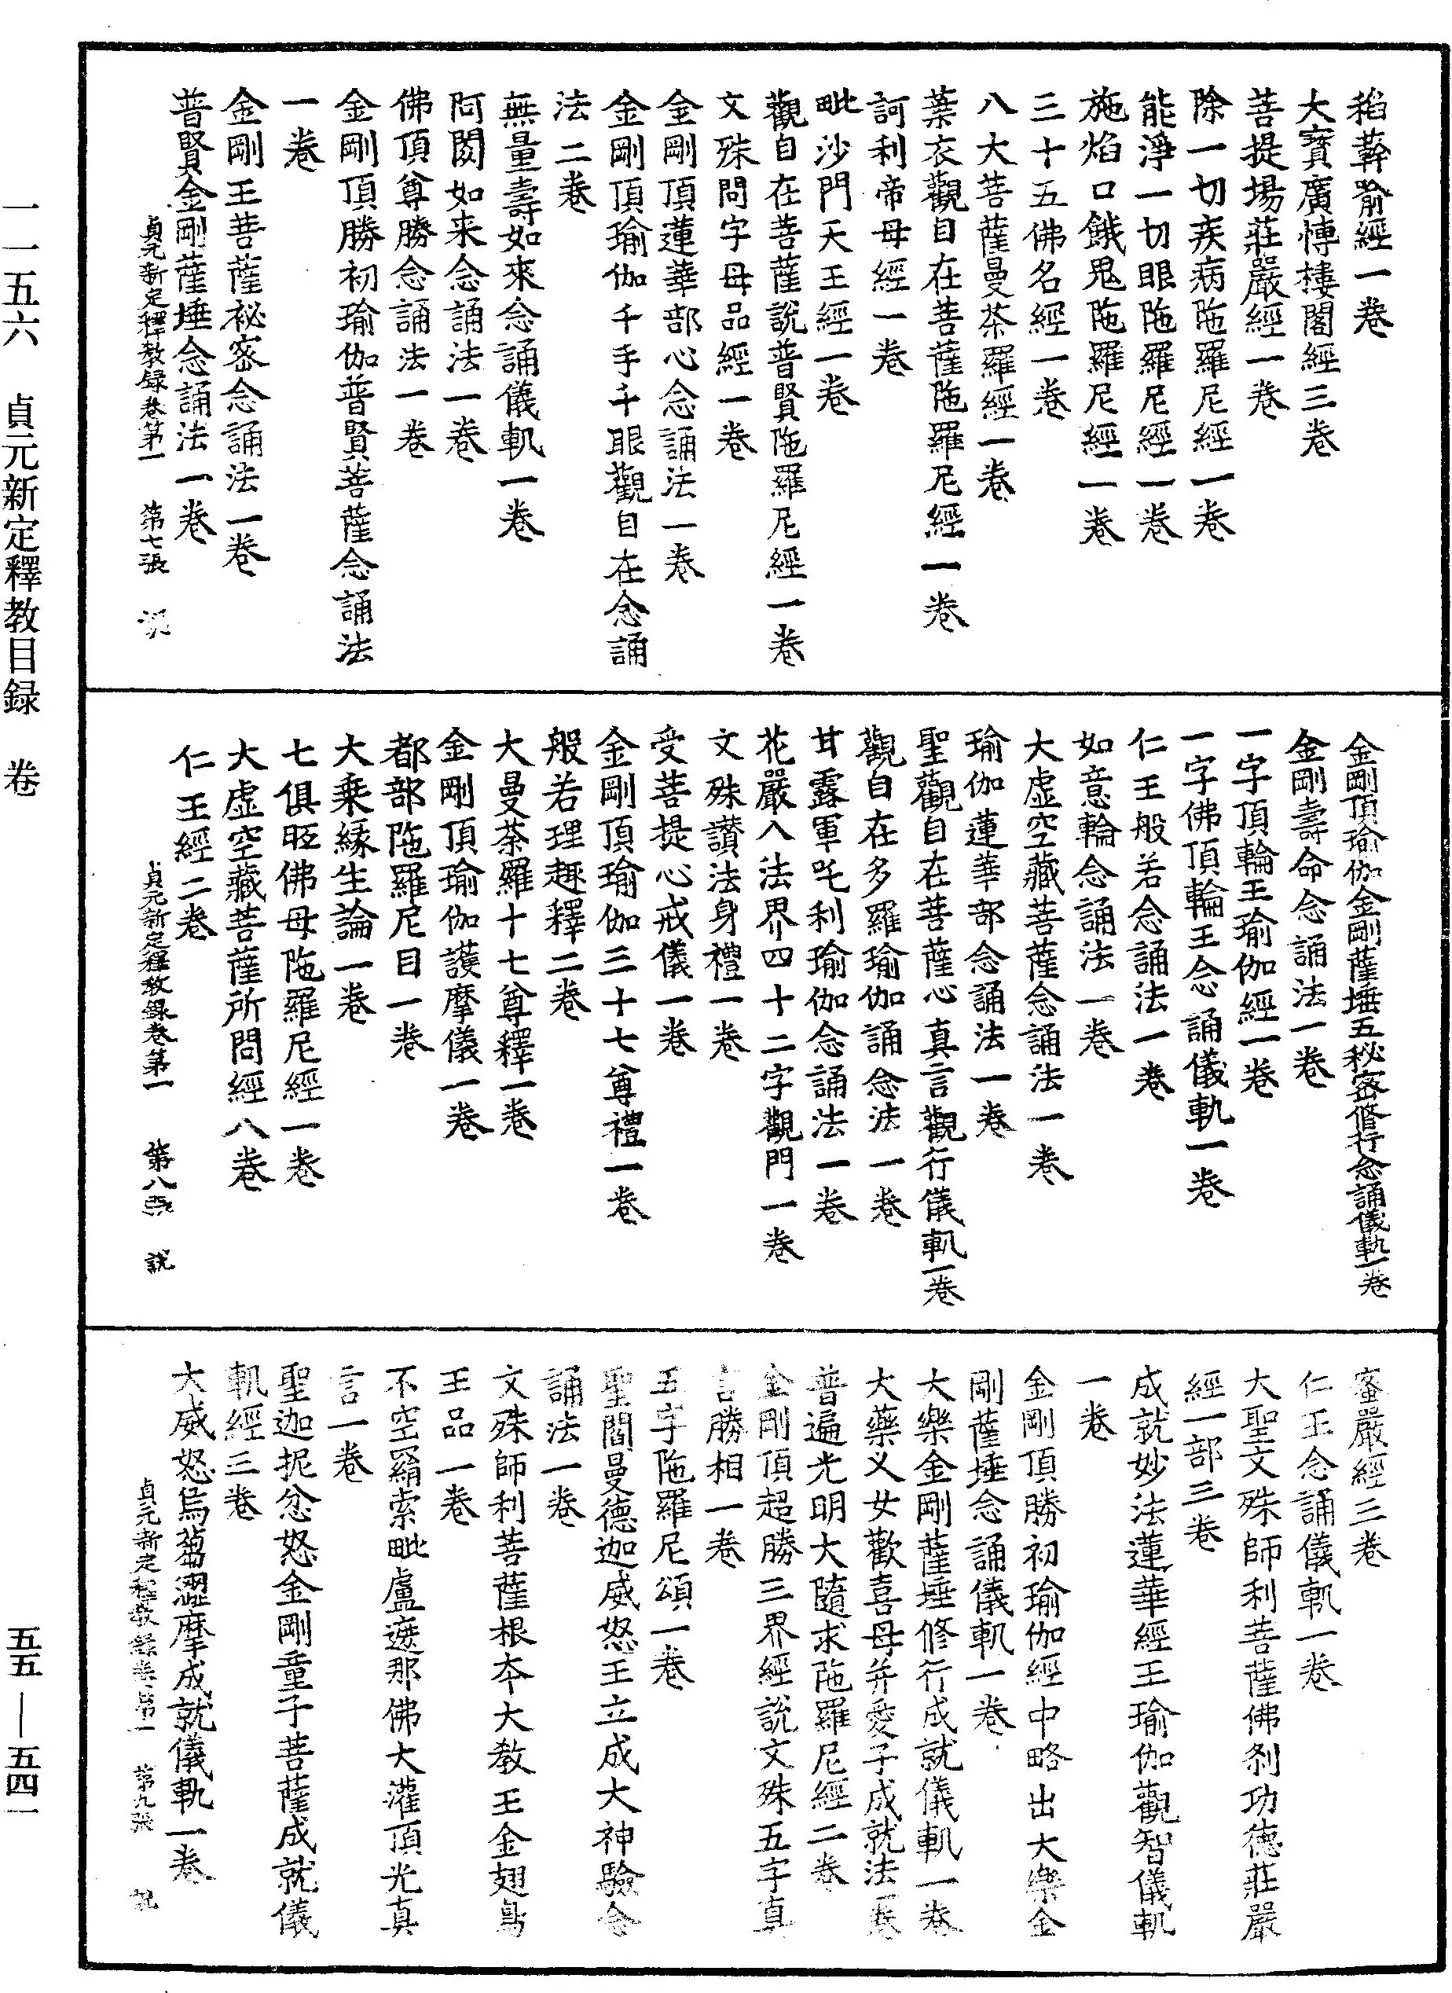 稻𦼮喻經一卷
大寶廣慱樓閣經三卷
菩提場莊嚴經一卷
除一切疾病陁羅尼經一卷
能淨一切眼陁羅尼經一卷
施焰口餓鬼陁羅尼經一卷
三十五佛名經一卷
八大菩薩曼茶羅經一卷
葉衣觀自在菩薩陁羅尼經一卷
訶利帝母經一卷
毗沙門天王經一卷
觀自在菩薩說普賢陁羅尼經一卷
文殊問字母品經一卷
金剛頂蓮華部心念誦法一卷
金剛頂瑜伽千手千眼觀自在念誦
法二卷
無量壽如來念誦儀軌一卷
阿閦如来念誦法一卷
佛頂尊勝念誦法一卷
金剛頂勝初瑜伽普賢菩薩念誦法
一卷
金剛王菩薩祕密念誦法一卷
普賢金剛薩埵念誦法一卷
貞元新定釋教録卷第一 第七張 說
金剛頂瑜伽金剛薩埵五秘密修行念誦儀軌一卷
金剛壽命念誦法一卷
一字頂輪王瑜伽經一卷
一字佛頂輪王念誦儀軌一卷
仁王般若念誦法一卷
如意輪念誦法一卷
大虛空藏菩薩念誦法一卷
瑜伽蓮華部念誦法一卷
聖觀自在菩薩心真言觀行儀軌一卷
觀自在多羅瑜伽誦念法一卷
甘露軍吒利瑜伽念誦法一卷
花嚴入法界四十二字觀門一卷
文殊讃法身禮一卷
受菩提心戒儀一卷
金剛頂瑜伽三十七尊禮一卷
般若理趣釋二卷
大曼茶羅十七尊釋一卷
金剛頂瑜伽護摩儀一卷
都部陁羅尼目一卷
大乘緣生論一卷
七俱胝佛母陁羅尼經一卷
大虛空藏菩薩所問經八卷
仁王經二卷
貞元新定釋教録卷第一 第八張 說
蜜嚴經三卷
仁王念誦儀軌一卷
大聖文殊師利菩薩佛刹功德莊嚴
經一部三卷
成就妙法蓮華經王瑜伽觀智儀軌
一卷
金剛頂勝初瑜伽經中略出大樂金
剛薩埵念誦儀軌一卷
大樂金剛薩埵修行成就儀軌一卷
大藥叉女歡喜母并愛子成就法一卷
普遍光明大隨求陁羅尼經二卷
金剛頂超勝三界經說文殊五字真
言勝相一卷
五字陁羅尼頌一卷
聖閻曼德迦威怒王立成大神驗念
誦法一卷
文殊師利菩薩根夲大教王金翅鳥
王品一卷
不空羂索毗盧遮那佛大灌頂光真
言一卷
聖迦抳忿怒金剛童子菩薩成就儀
軌經三卷
大威怒烏蒭澀摩成就儀軌一卷
貞元新定釋教録卷第一 第九張 說
一一五六 貞元新定釋教目録 卷
五五—五四一